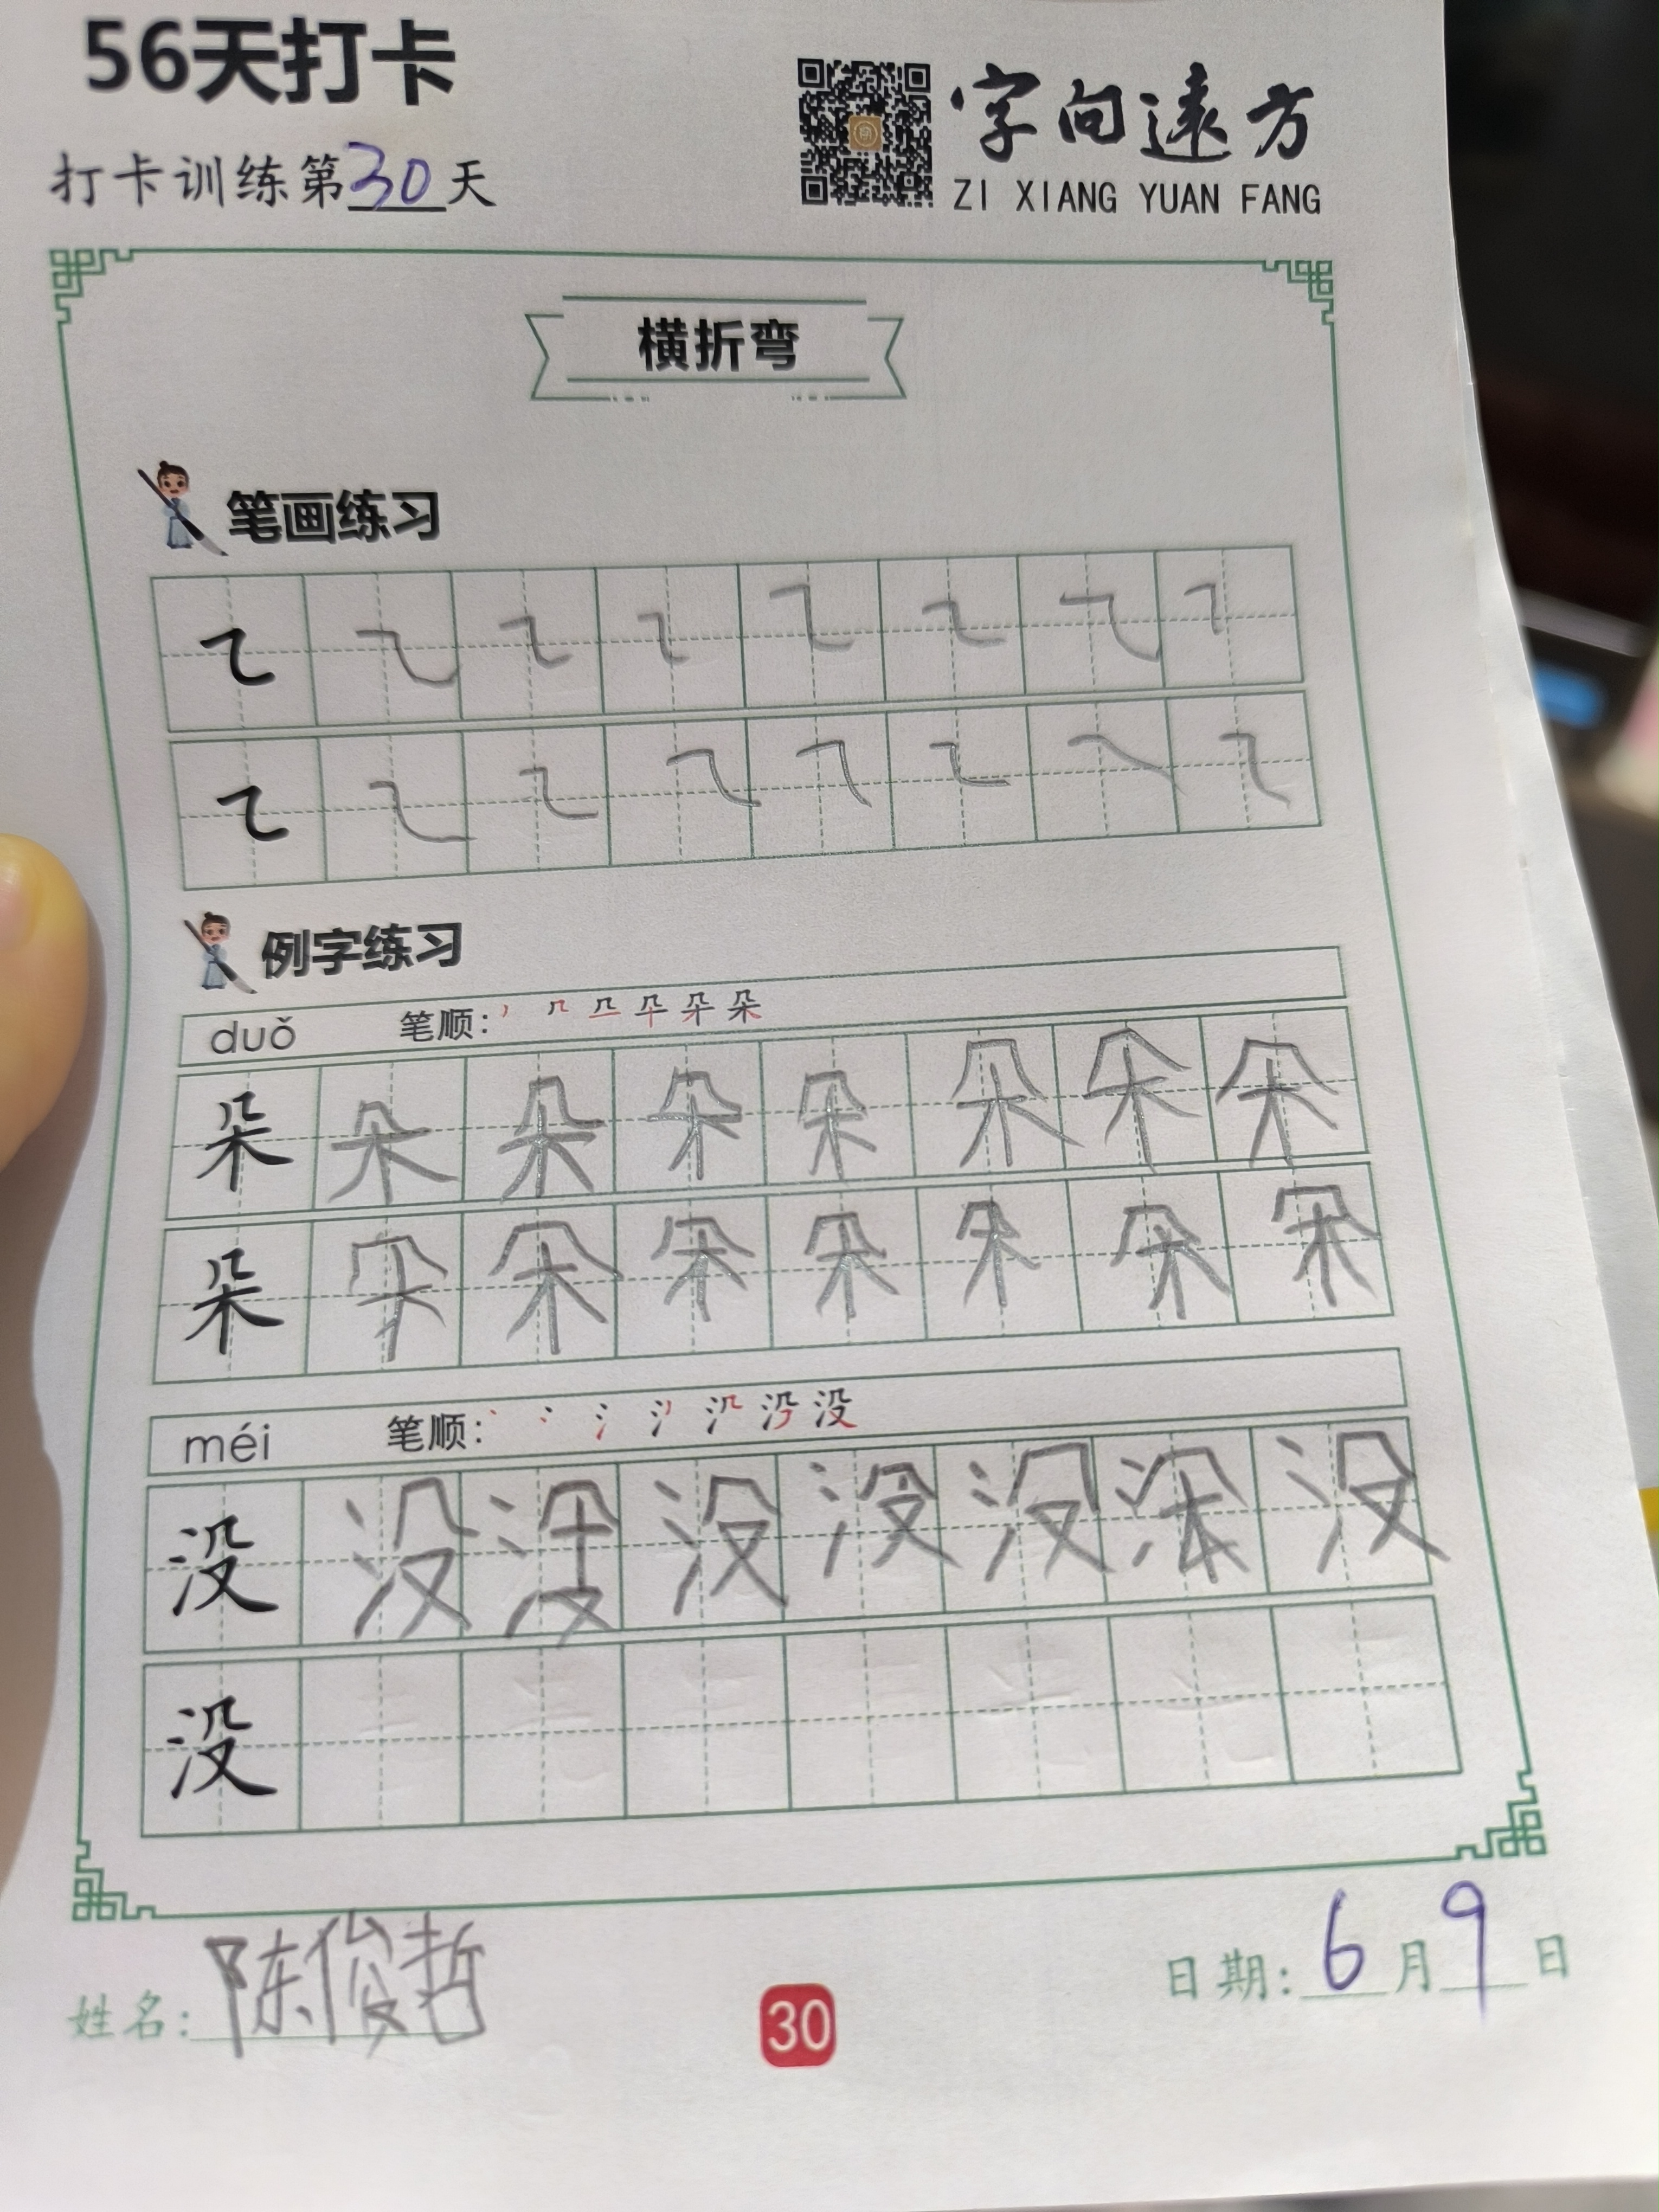 56天打卡
打卡训练第30天
字向遠方
ZI XIANG YUAN FANG
横折弯
笔画练习
例字练习
duǒ 笔顺:
朵 朵 朵 朵 朵 朵 朵 朵
朵 朵 朵 朵 朵 朵 朵 朵
méi 笔顺:
没 没 没 没 没 没 没
没
姓名: 陈俊哲
30
日期: 6月9日